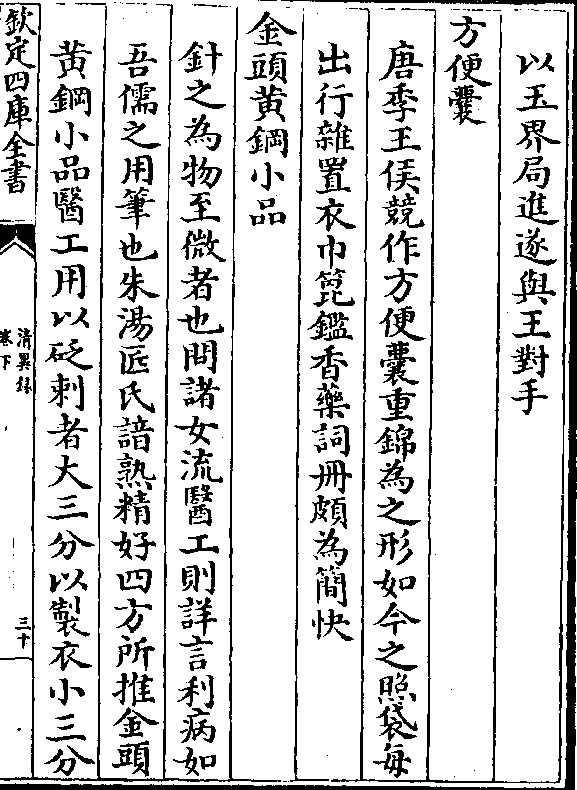 以玉界局進遂與王對手
方便囊
唐季王侯競作方便囊重錦為之形如今之照袋每
出行雜置衣巾篦鑑香藥詞冊頗為簡快
金頭黃鋼小品
針之為物至微者也問諸女流醫工則詳言利病如
吾儒之用筆也朱湯匠氏諳熟精好四方所推金頭
黃鋼小品醫工用以砭刺者大三分以製衣小三分
欽定四庫全書
清異錄
卷下
三十